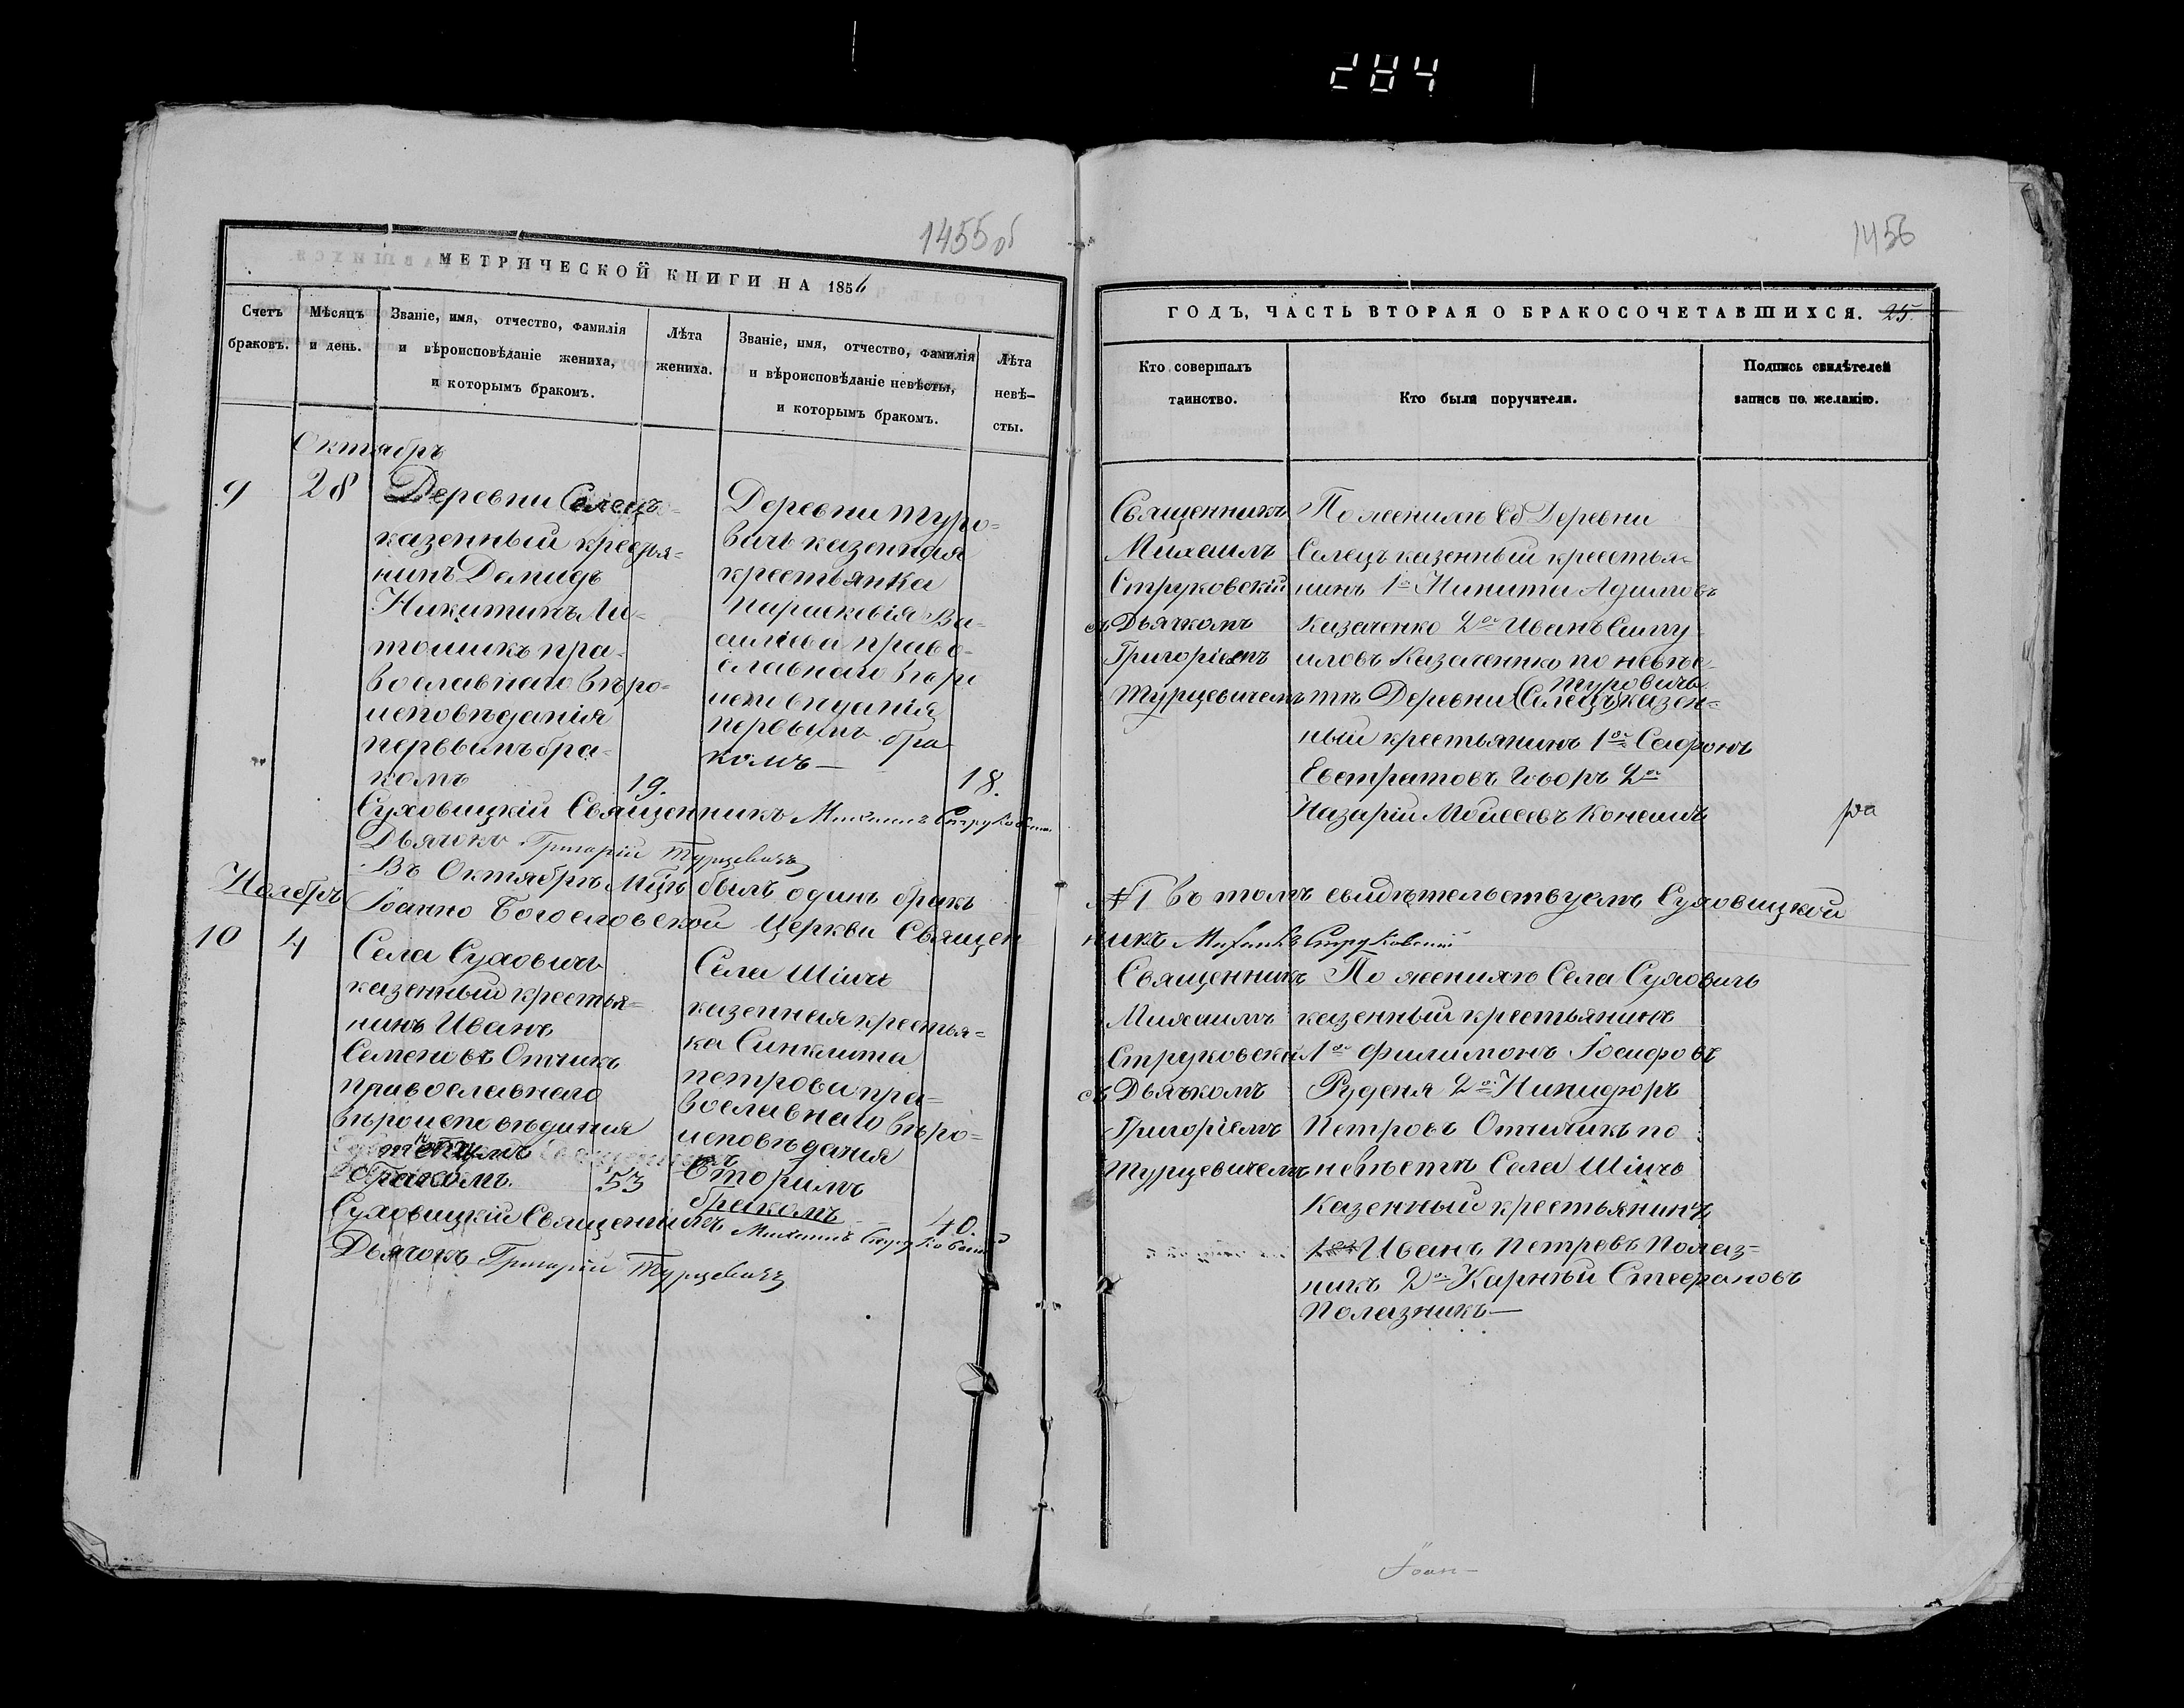 284
1455 об
МЕТРИЧЕСКОЙ КНИГИ НА 1856
Счетъ браковъ.
Мѣсяцъ и день.
Званіе, имя, отчество, фамилія
и вѣроисповѣданіе жениха,
и которымъ бракомъ.
Лѣта жениха.
Званіе, имя, отчество, фамилія
и вѣроисповѣданіе невѣсты,
и которымъ бракомъ.
Лѣта невѣ-
сты.
Октябрь
9
28
Деревни Селецъ
казенный крестья-
нинъ Демидъ
Никитинъ Ли-
тошикъ пра-
вославнаго вѣро-
исповѣданія
первымъ бра-
комъ
19.
Деревни Туро-
вичъ казенная
крестьянка
Параскевія Ва-
силіева право-
славнаго вѣро
исповѣданія
первымъ бра
комъ —
18.
Суховицкій Священникъ Михаилъ Струковскій
Дьячокъ Григорій Турцевичъ
Въ Октябрѣ М-цѣ былъ одинъ бракъ
Ноябрь
Іоанно Богословской Церкви Священ
10
4
Села Суховичъ
казенный крестья-
нинъ Иванъ
Семеновъ Отчикъ
православнаго
вѣроисповѣдания
третьимъ
бракомъ
53
Села Шіичъ
казенная крестья-
ка Синклита
петрова пра-
вославнаго вѣро-
исповѣдания
Вторимъ
бракомъ
40.
Суховицкій Священникъ Михаилъ Струковскій
Дьячокъ Григорій Турцевичъ
1456
ГОДЪ, ЧАСТЬ ВТОРАЯ О БРАКОСОЧЕТАВШИХСЯ. 25.
Кто совершалъ
таинство.
Кто были поручители.
Подпись свидѣтелей
записи по желанію.
Священникъ
Михаилъ
Струковскій
съ Дьячкомъ
Григоріемъ
Турцевичемъ
По женихѣ Деревни
Селецъ казенный крестья-
нинъ 1й Никита Адамовъ
Казаченко 2й Иванъ Саму
иловъ Казаченко по невѣс-
Туровичъ
тѣ Деревни (Селецъ) казен-
ный крестьянинъ 1й Софронъ
Евстратовъ 2й
Назарій Мойсеевъ
въ томъ свидѣтельствуемъ Суховицкой
никъ Михаилъ Струковскій
Священникъ
Михаилъ
Струковскій
съ Дьячкомъ
Григоріемъ
Турцевичемъ
По женихѣ Села Суховичъ
казенный крестьянинъ
1й Филимонъ Іосифовъ
Руденя 2й Никифоръ
Петровъ Отчикъ по
невѣстѣ Села Шіичъ
Казенный крестьянинъ
1й Иванъ Петровъ Полаз-
никъ 2й Карнѣй Стефановъ
Полазникъ —
Іоан-